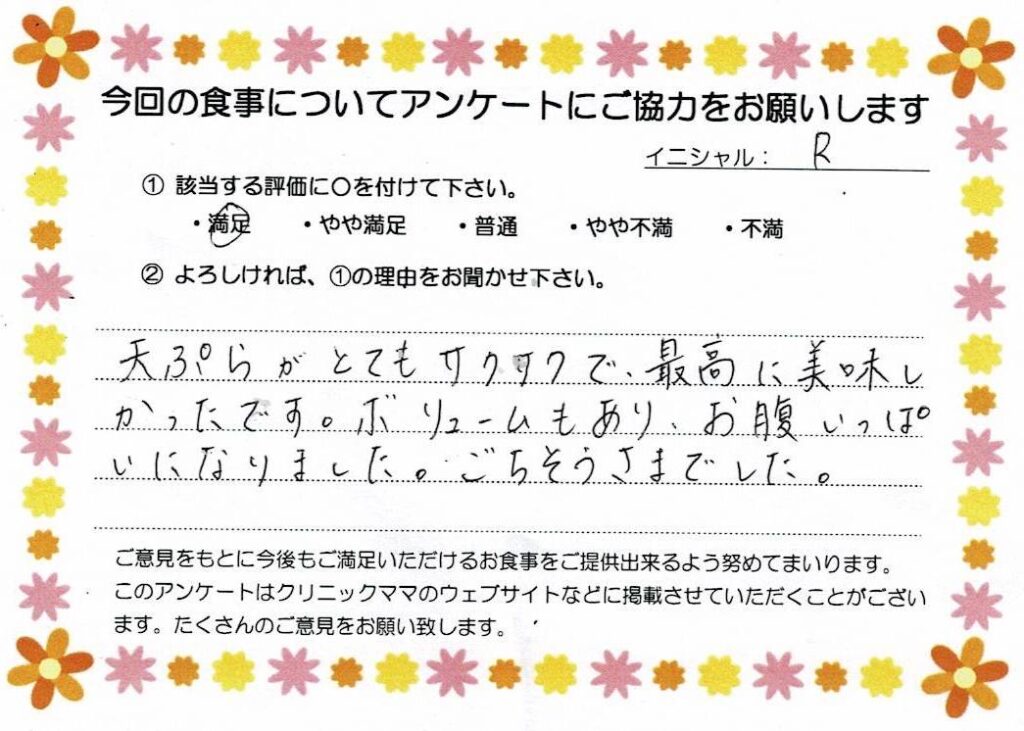 今回の食事についてアンケートにご協力をお願いします
イニシャル： R
① 該当する評価に〇を付けて下さい。
・満足 ・やや満足 ・普通 ・やや不満 ・不満
② よろしければ、①の理由をお聞かせ下さい。
天ぷらがとてもサクサクで、最高に美味し
かったです。ボリュームもあり、お腹いっぱ
いになりました。ごちそうさまでした。
ご意見をもとに今後もご満足いただけるお食事をご提供出来るよう努めてまいります。
このアンケートはクリニックママのウェブサイトなどに掲載させていただくことがござい
ます。たくさんのご意見をお願い致します。